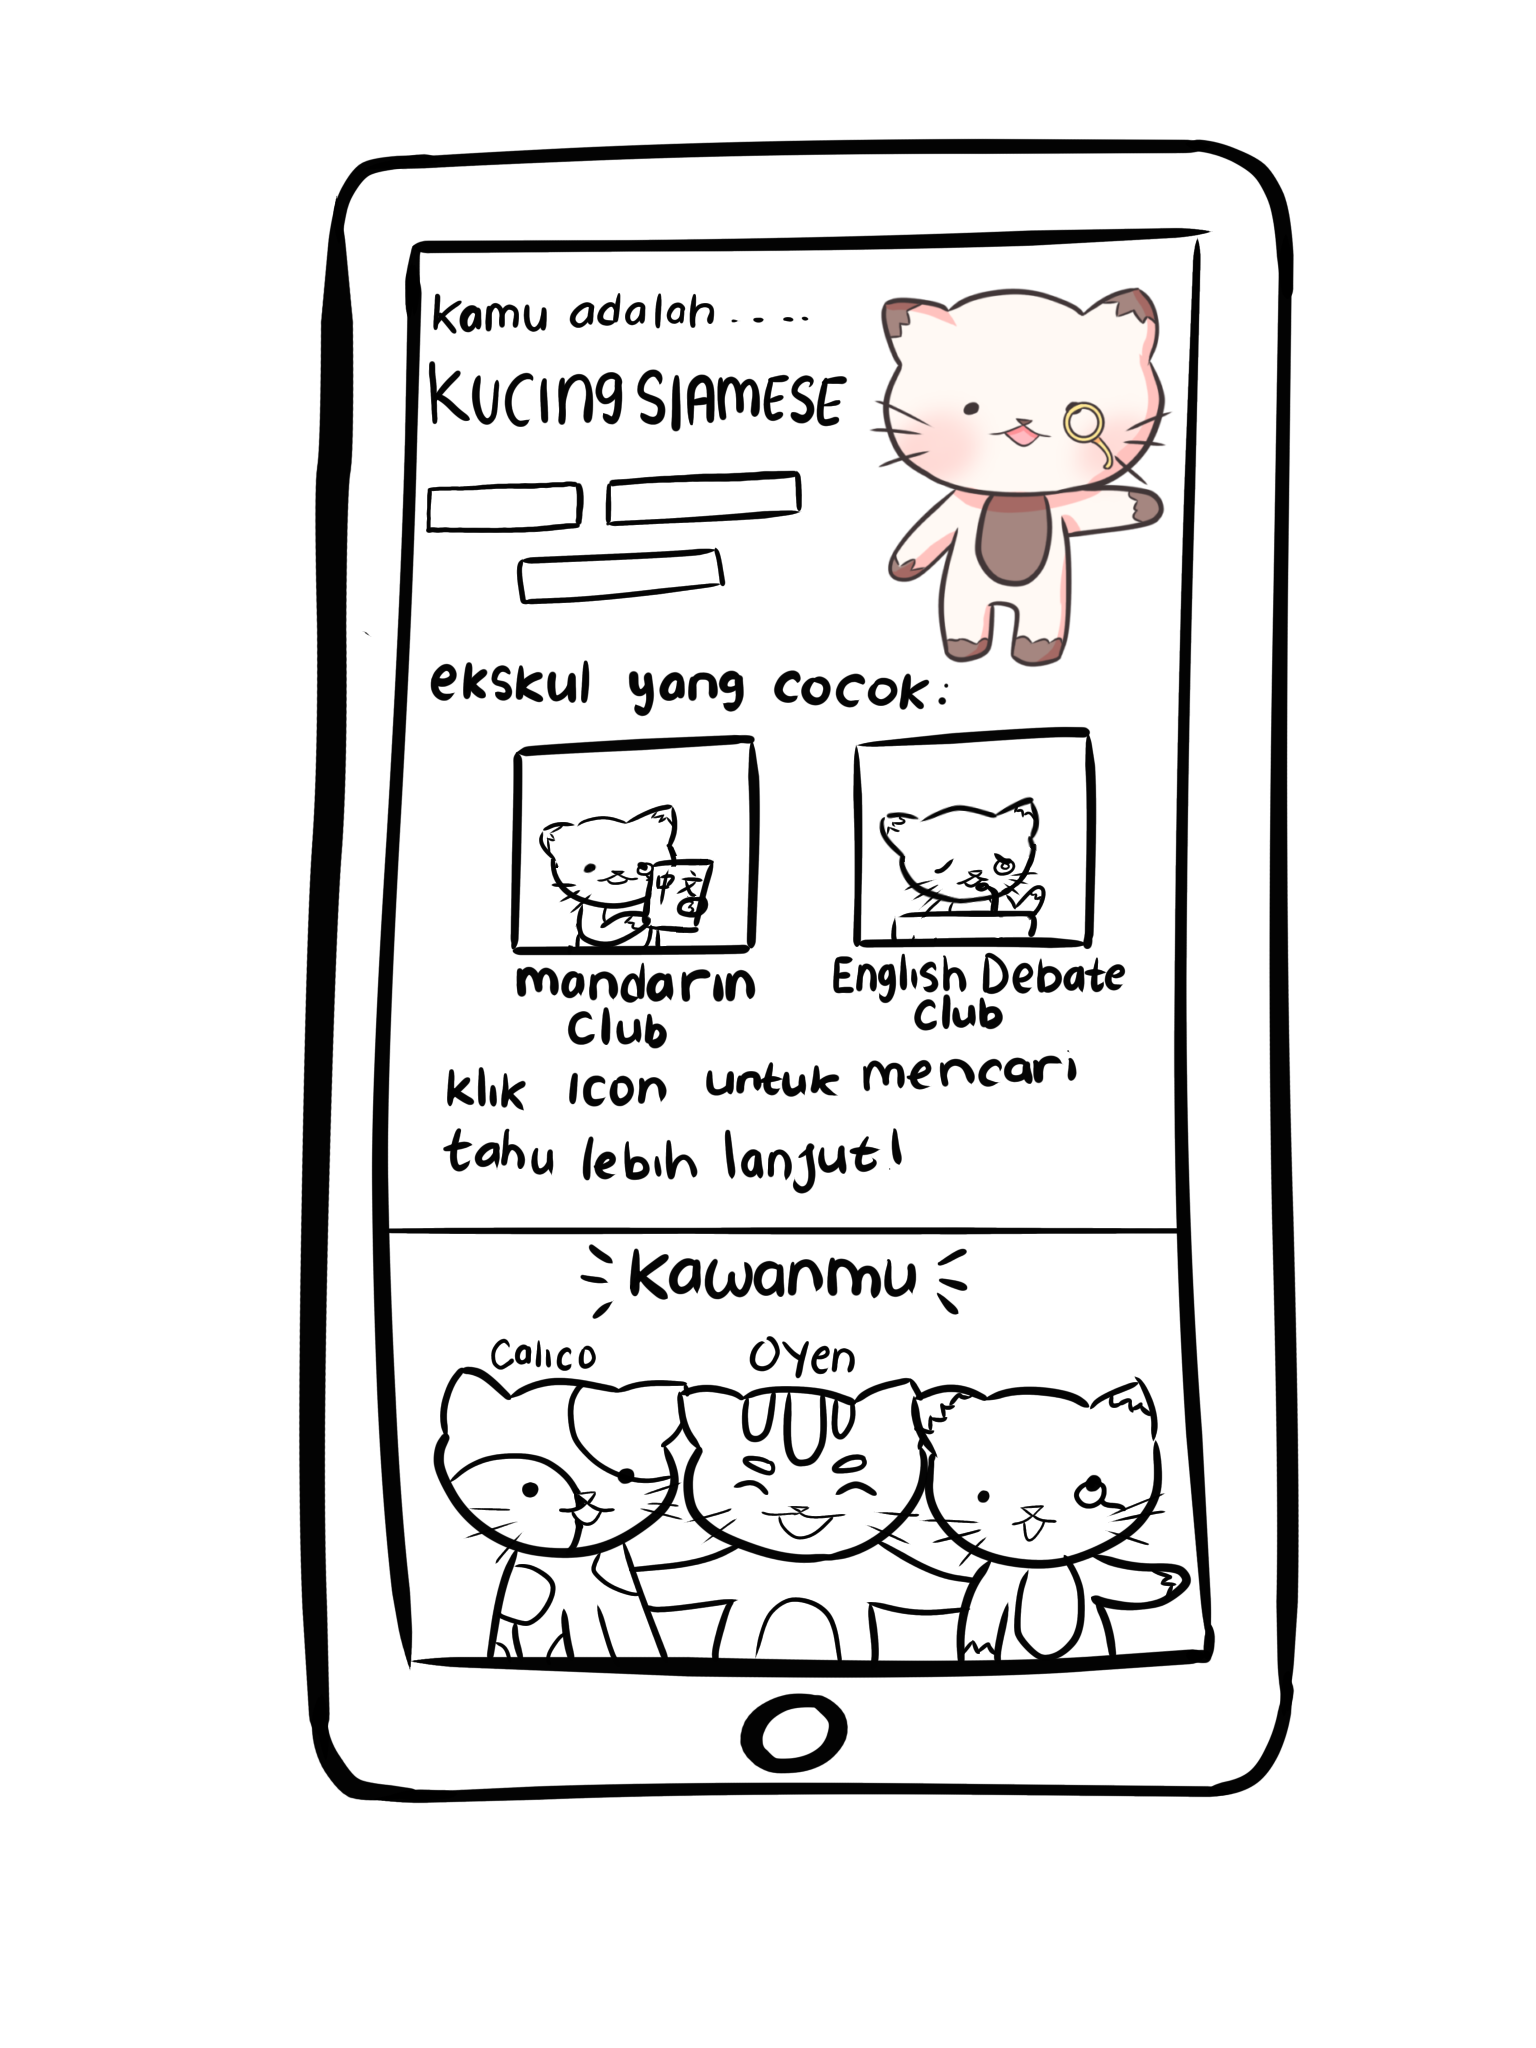 kamu adalah .....
KUCING SIAMESE
ekskul yang cocok:
中文
mandarin
club
English Debate
club
klik icon untuk mencari
tahu lebih lanjut!
kawanmu
Calico
Oyen